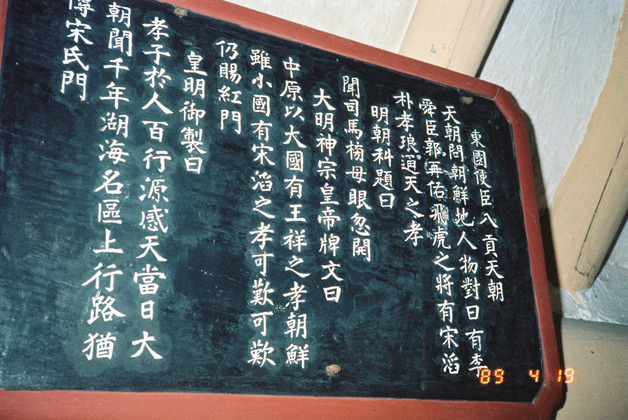 東國使臣入貢天朝
天朝問朝鮮地人物對曰有李
舜臣郭再佑飛虎之將有宋滔
朴孝琅通天之孝
明朝科題曰
聞司馬楠母眼忽開
大明神宗皇帝牌文曰
中原以大國有王祥之孝朝鮮
雖小國有宋滔之孝可歎可歎
仍賜紅門
皇明御製曰
孝子於人百行源感天當日大
朝聞千年湖海名區上行路猶
傳宋氏門
89 4 19